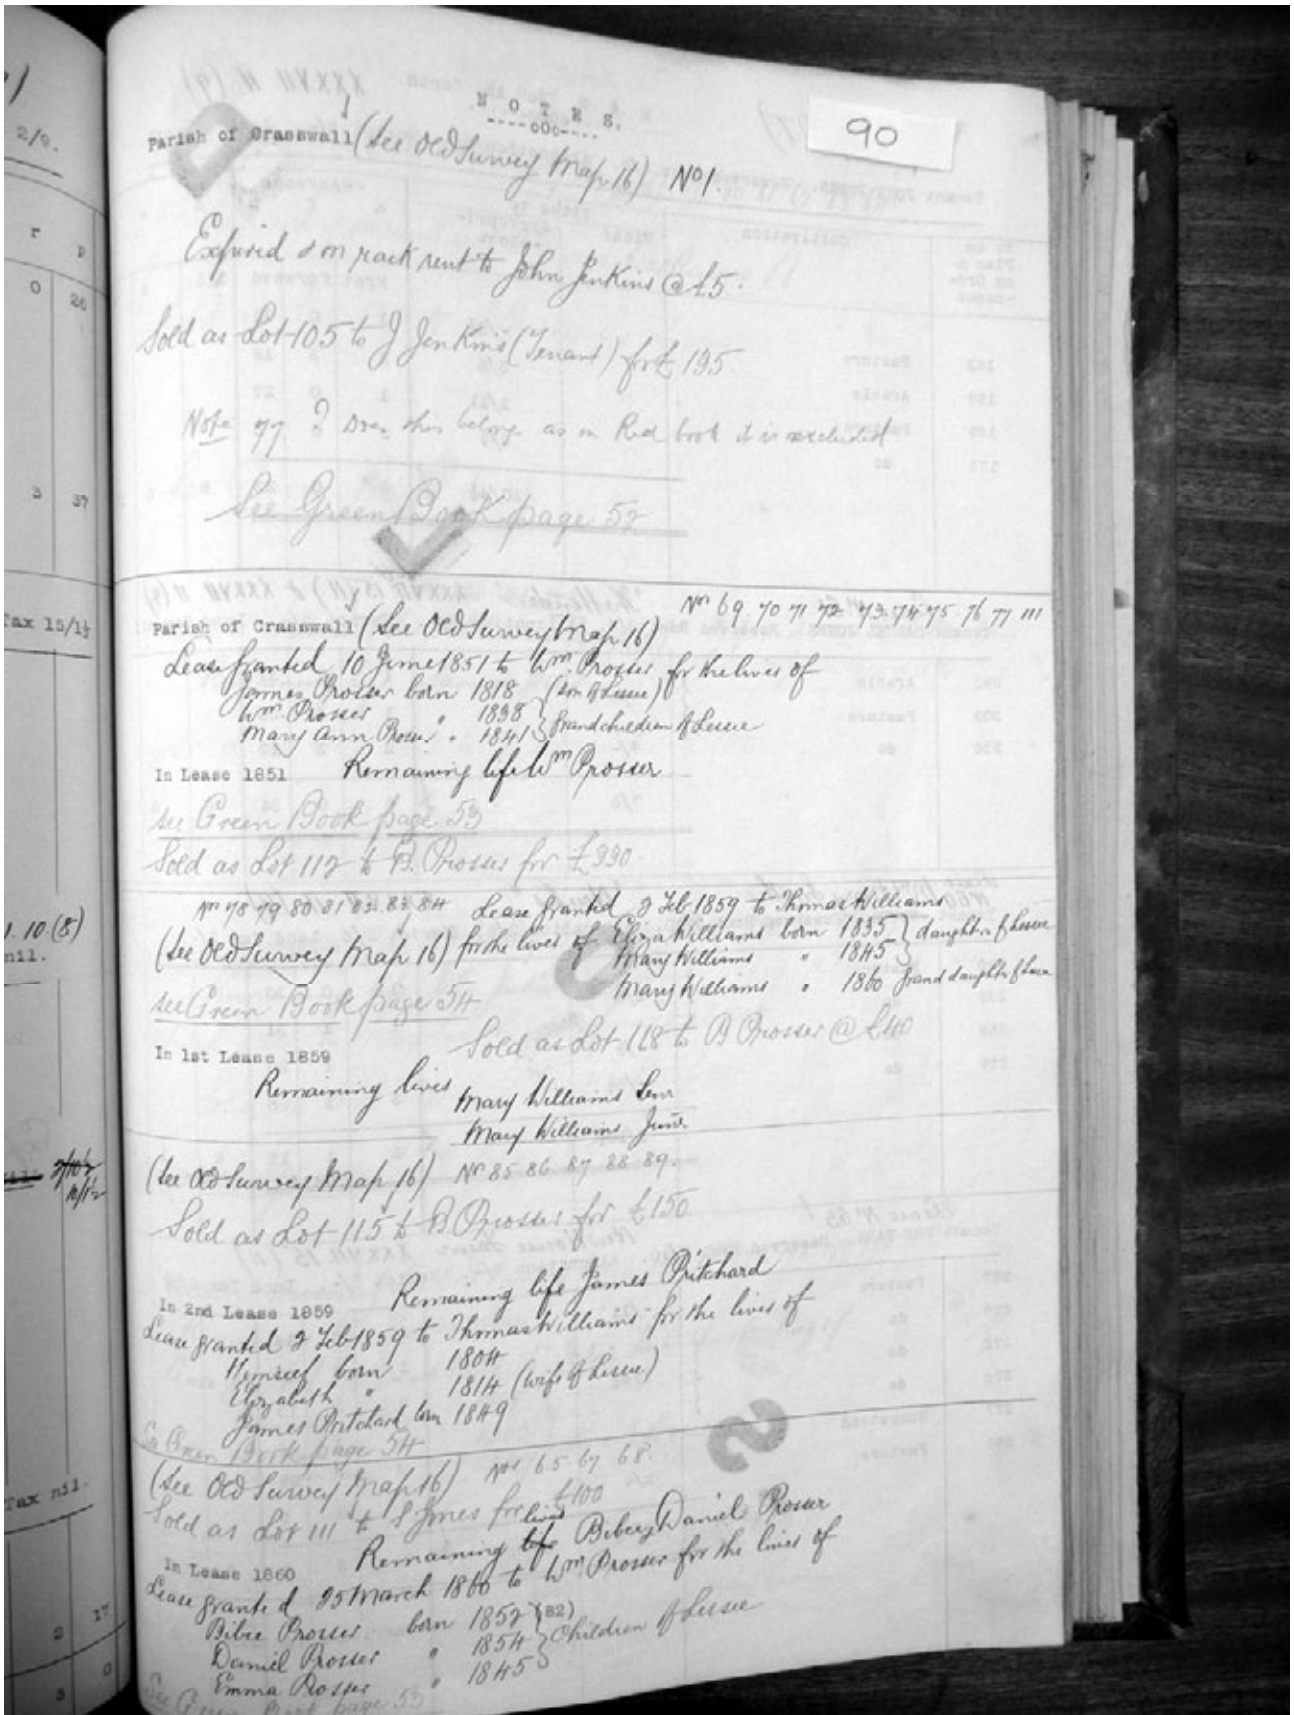 90
NOTES.
----oOo----
Parish of Crasswall (See Old Survey Map 16) No 1.
Expired & on rack rent to John Jenkins @ £5.
Sold as Lot 105 to J Jenkins (Tenant) for £195
Note 77 ? Does this belong as on Red book it is excluded
See Green Book page 52
Nos 69 70 71 72 73 74 75 76 77 111
Parish of Crasswall (See Old Survey Map 16)
Lease granted 10 June 1851 to Wm. Prosser for the lives of
James Prosser born 1818 (Son of Lessee)
Wm. Prosser " 1838
Mary Ann Prosser " 1841 } Grandchildren of Lessee
In Lease 1851 Remaining life Wm Prosser
See Green Book page 53
Sold as Lot 112 to B. Prosser for £990
Nos 78 79 80 81 82 83 84 Lease granted 2 Feb 1859 to Thomas Williams
(See Old Survey Map 16) for the lives of Eliza Williams born 1835 } daughters of Lessee
Mary Williams " 1845
Mary Williams " 1860 Grand daughter of Lessee
See Green Book page 54
Sold as Lot 118 to B Prosser @ £40
In 1st Lease 1859
Remaining lives Mary Williams Senr
Mary Williams Junr
(See Old Survey Map 16) Nos 85 86 87 88 89.
Sold as Lot 115 to B Prosser for £150
Remaining life James Pritchard
In 2nd Lease 1859
Lease granted 2 Feb 1859 to Thomas Williams for the lives of
Himself born 1804
Elizabeth " 1814 (wife of Lessee)
James Pritchard born 1849
See Green Book page 54
(See Old Survey Map 16) Nos 65 67 68.
Sold as Lot 111 to S Jones for £100
Remaining lives Bibee Daniel Prosser
In Lease 1860
Lease granted 25 March 1860 to Wm Prosser for the lives of
Bibee Prosser born 1852 (82)
Daniel Prosser " 1854 } Children of Lessee
Emma Prosser " 1845
See Green Book page 53